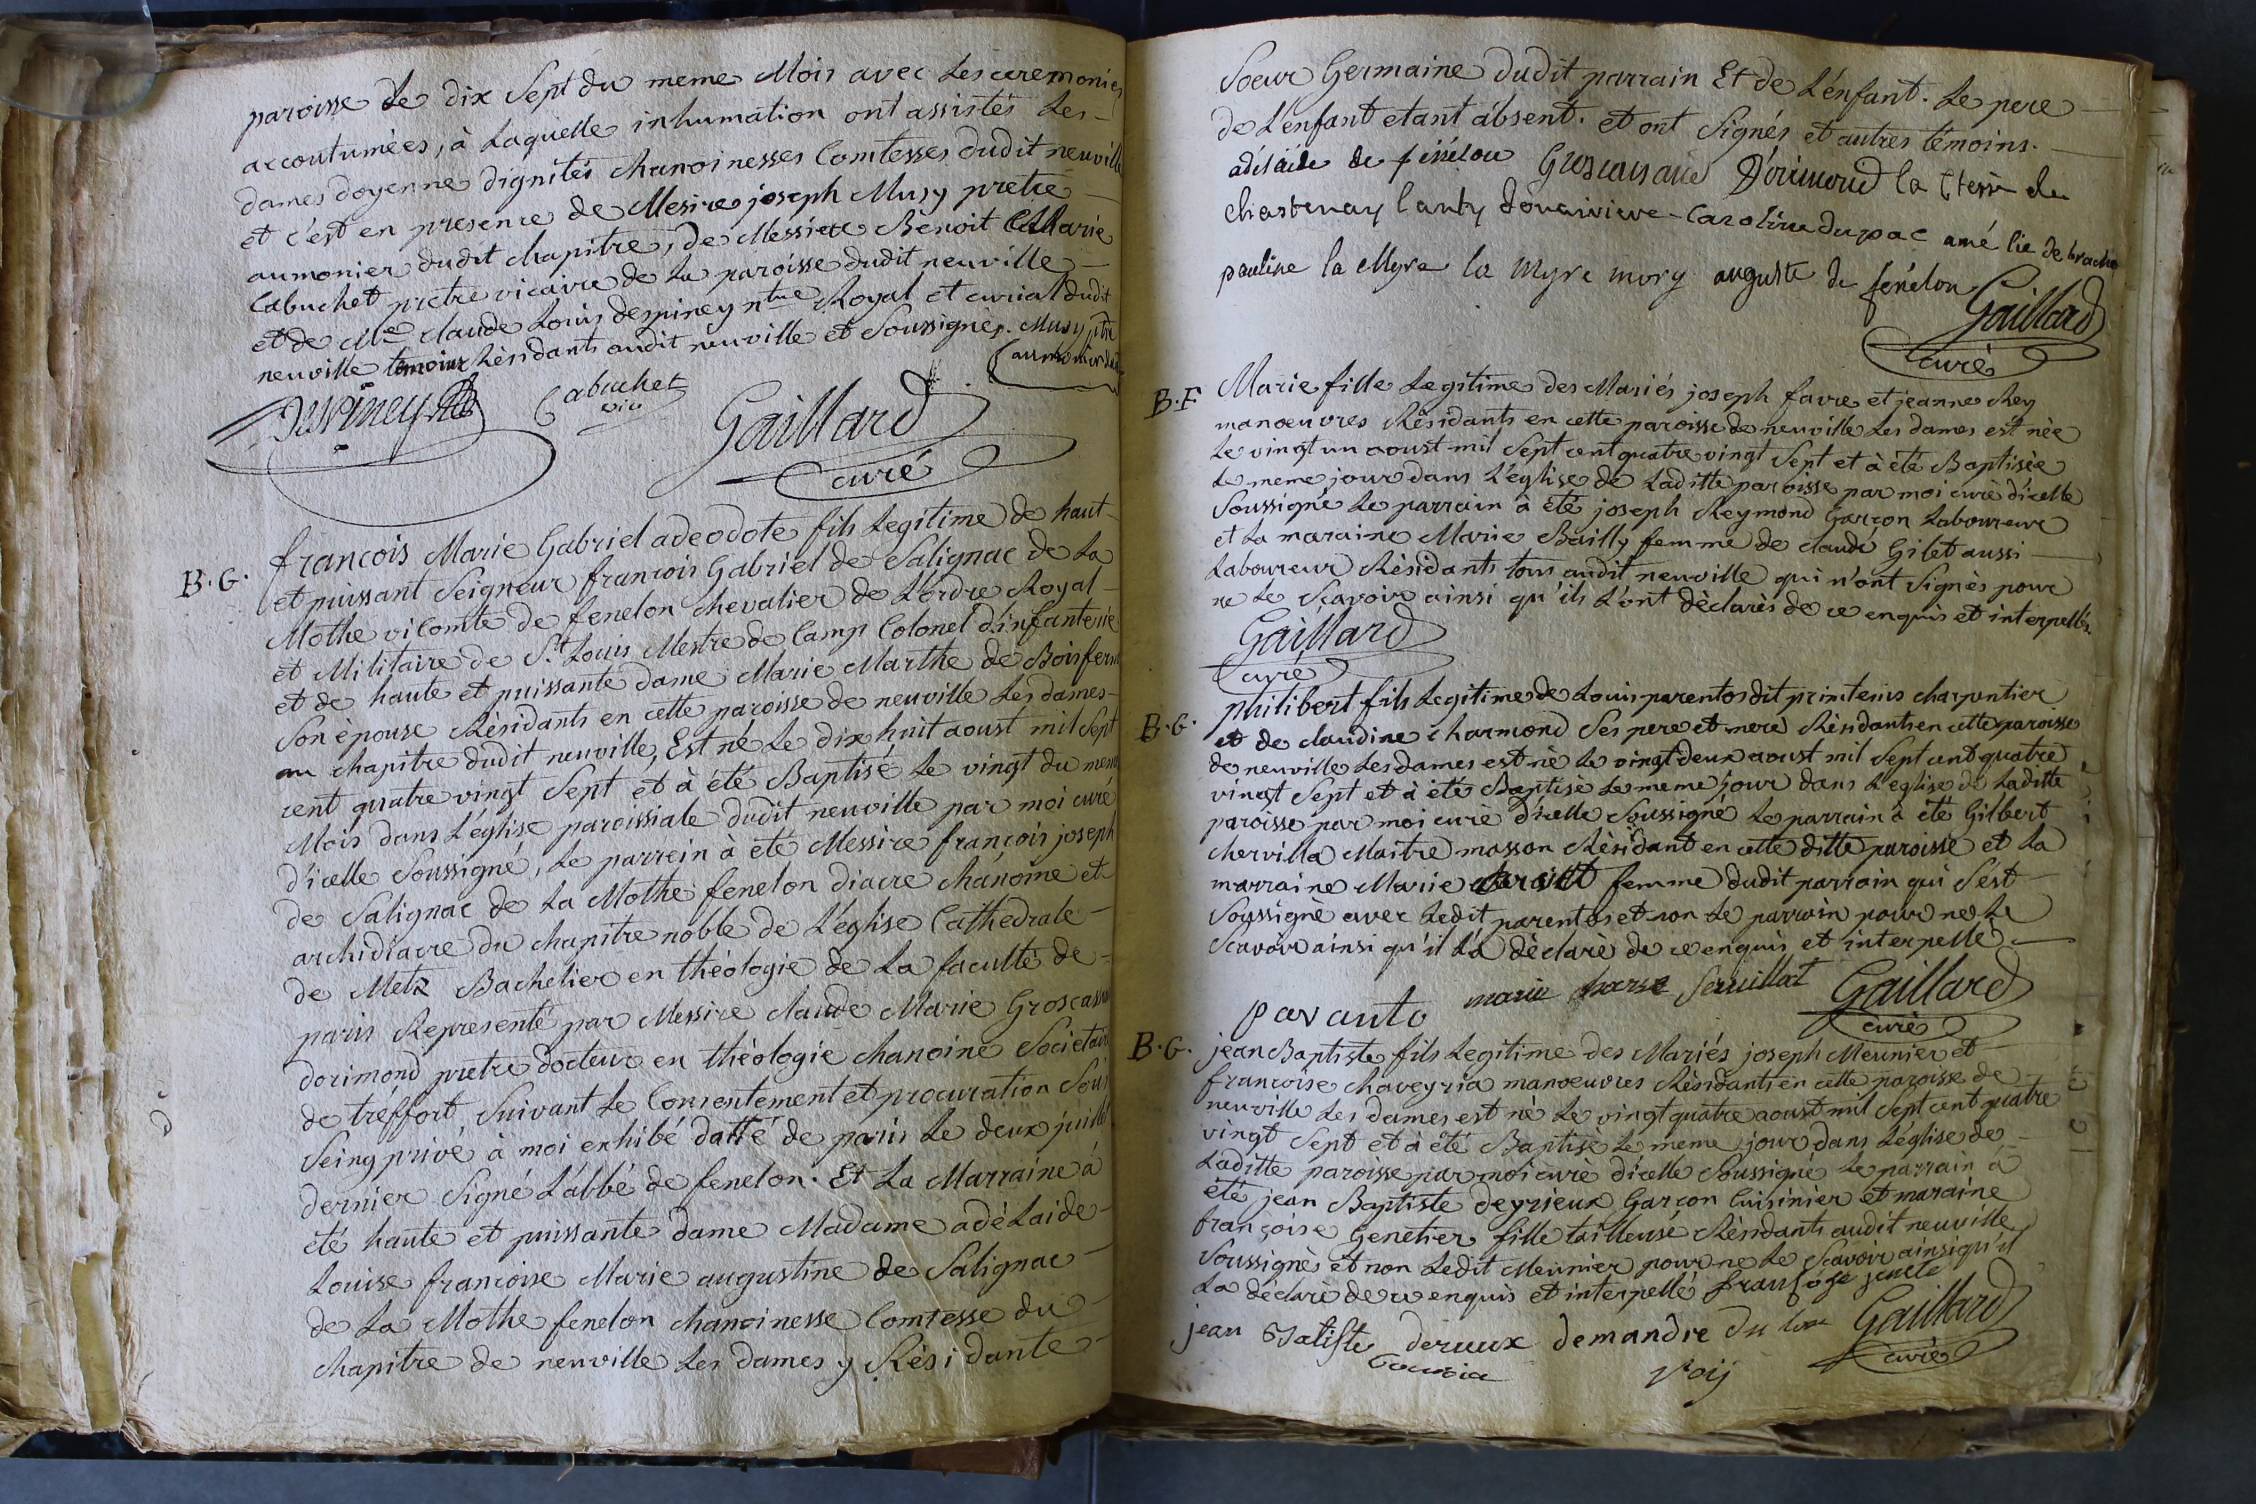 paroisse le dix Sept du meme Mois avec Les ceremonies
accoutumées, à Laquelle inhumation ont assistés Les
dames doyenne dignités chanoinesses Comtesses dudit neuville
et c'est en presence de Mesire joseph Musy pretre
aumonier dudit chapitre, de Messire Benoit Marie
Cabuchet pretre vicaire de La paroisse dudit neuville
et de Me claude Louis despiney ntre Royal et curial dudit
neuville temoins Résidants audit neuville et Soussignés. Musy ptre
aumonier
Despiney
Cabuchet
vic
Gaillard
curé
B. G. francois Marie Gabriel adeodote fils Legitime de haut
et puissant Seigneur francois Gabriel de Salignac de La
Mothe viComte de fenelon chevalier de L'ordre Royal
et Militaire de St Louis Mestre de Camp Colonel d'infanterie
et de haute et puissante dame Marie Marthe de Boisferm
Son épouse Résidants en cette paroisse de neuville Les dames
au chapitre dudit neuville, Est né Le dix huit aoust mil Sept
cent quatre vingt Sept et à été Baptisé Le vingt du mem
Mois dans L'église paroissiale dudit neuville par moi curé
d'icelle Soussigné, Le parrein à été Messire françois joseph
de Salignac de La Mothe fenelon diacre chanoine et
archidiacre du chapitre noble de L'église Cathedrale
de Metz Bachelier en théologie de La faculté de
paris Representé par Messire claude Marie Groscassan
dorimond pretre docteur en théologie chanoine Societaire
de treffort Suivant Le Consentement et procuration Sous
Seing privé à moi exhibé datté de paris Le deux juillet
dernier Signé L'abbé de fenelon. Et La Marraine à
été haute et puissante dame Madame adélaide
Louise francoise Marie augustine de Salignac
de La Mothe fenelon chanoinesse Comtesse du
chapitre de neuville Les dames y Résidante
Soeur Germaine dudit parrain Et de L'énfant. Le pere
de L'enfant etant absent. et ont Signés et autres témoins.
adélaïde de fénélon Groscassand Dorimond la Ctesse de
chastenay Lanty Caroline dupac amélie de
pauline la Myre la Myre mory auguste de fénélon
Gaillard
curé
B. F Marie fille Legitime des Mariés joseph favre et jeanne Rey
manoeuvres Résidants en cette paroisse de neuville Les dames est née
Le vingt un aoust mil Sept cent quatre vingt Sept et à été Baptisée
Le meme jour dans L'église de Laditte paroisse par moi curé d'icelle
Soussigné Le parrain à été joseph Reymond Garçon Laboureur
et La maraine Marie Bailly femme de claude Gilet aussi
Laboureur Résidants tous audit neuville qui n'ont Signés pour
ne Le Scavoir ainsi qu'ils L'ont déclarés de ce enquis et interpellés.
Gaillard
curé
B. G. philibert fils Legitime de Louis parentos dit printems charpentier
et de claudine charmond Ses pere et mere Résidants en cette paroisse
de neuville Les dames est né Le vingt deux aoust mil Sept cent quatre
vingt Sept et à été Baptisé Le meme jour dans L'église de Laditte
paroisse par moi curé d'icelle Soussigné Le parrain à été Gilbert
chervilla Maitre masson Résidant en cette ditte paroisse et La
marraine Marie femme dudit parrain qui S'est
Soussigné avec Ledit parentos et non Le parrain pour ne Le
Scavoir ainsi qu'il L'a déclaré de ce enquis et interpellé.
paranto marie Gaillard
curé
B. G. jean Baptiste fils Legitime des Mariés joseph Meunier et
francoise chaveyria manoeuvres Résidants en cette paroisse de
neuville Les dames est né Le vingt quatre aoust mil Sept cent quatre
vingt Sept et à été Baptisé Le meme jour dans L'église de
Laditte paroisse par moi curé d'icelle Soussigné Le parrain à
été jean Baptiste deyrieux Garçon Cuisinier et maraine
françoise Genetier fille tailleuse Résidants audit neuville
Soussignés et non Ledit Meunier pour ne Le Scavoir ainsi qu'il
La déclaré de ce enquis et interpellé
jean Batiste demandre du Gaillard
curé